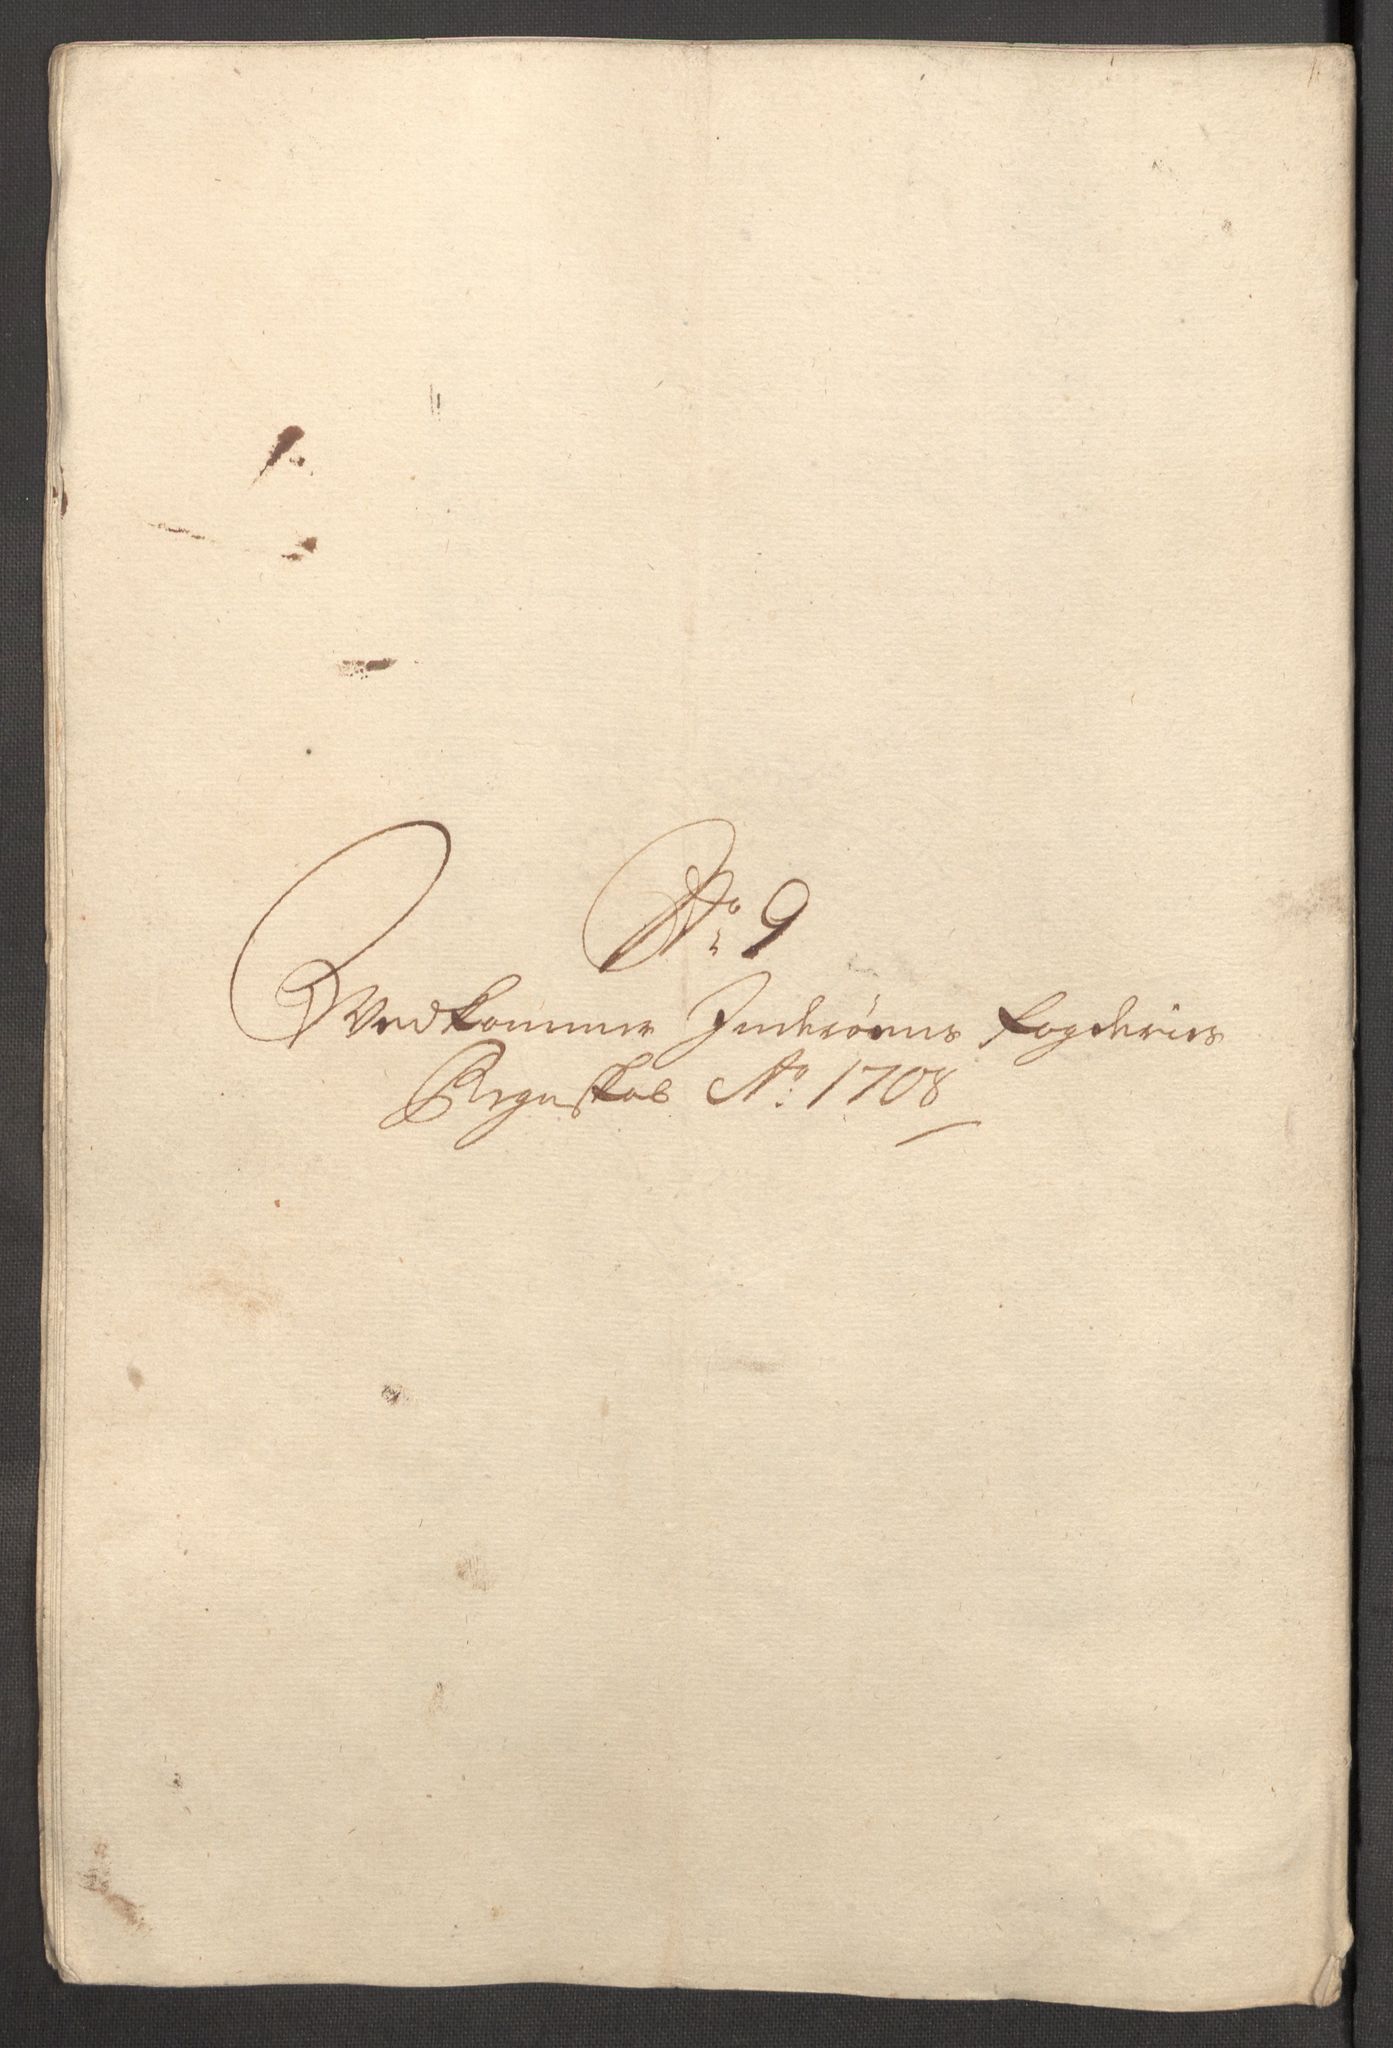 No: 9
Vedkommer Inderøens fogderies
Regnskab Ao: 1708